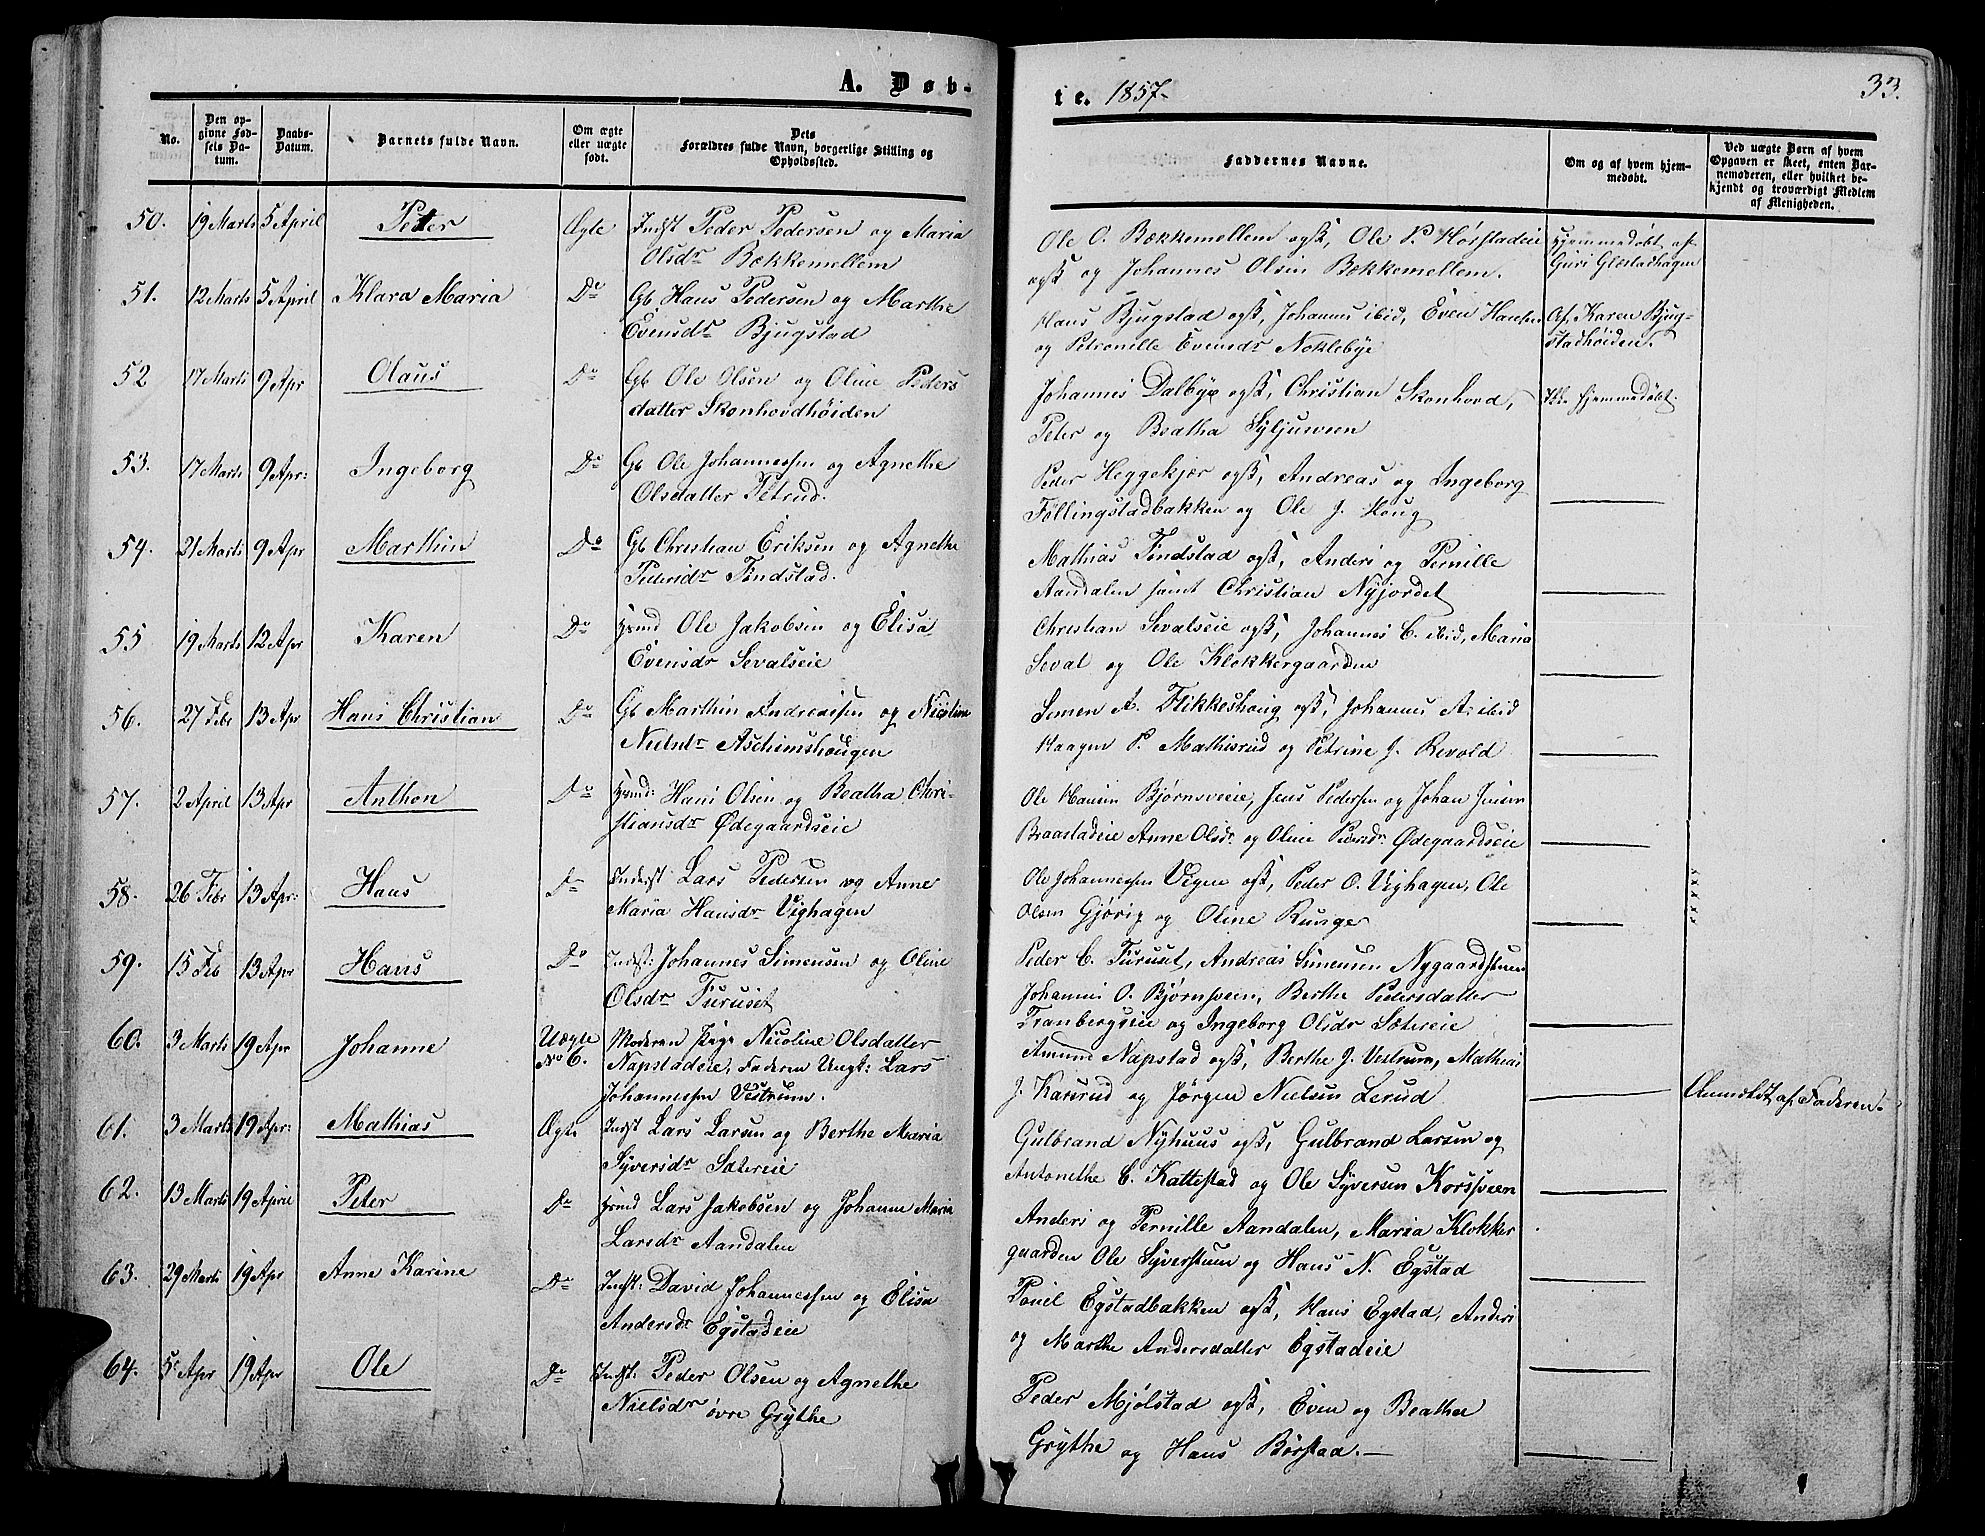 A. Døb-
No.
Den op-
givne Fød-
sels Da-
tum.
Daabs-
Datum.
Barnets fulde Navn.
Om ægte
eller uægte
født.
Dets
Forældres fulde Navn, borgerlige Stilling og
Opholdssted.
50. 19 Marts 5 April Peter Ægte Indst Peder Pedersen og Maria
Olsdr Bækkemellem
51. 12 Marts 5 April Klara Maria Do Gb Hans Pedersen og Marthe
Evensdr Bjugstad
52 17 Marts 9 Apr Olaus Do Gb Ole Olsen og Oline Peders
datter Skonhovdhøiden
53. 17 Marts 9 Apr: Ingeborg Do Gb Ole Johannessen og Agnethe
Olsdatter Tetrud.
54. 21 Marts 9 Apr Marthin Do Gb Christian Eriksen og Agnethe
Pedersdr Tøndstad.
55 19 Marts 12 Apr Karen Do Husmd Ole Jakobsen og Elisa
Evensdr Sevalseie
56. 27 Febr 13 Apr Hans Christian Do Gb Marthin Andreassen og Nicoline
Nielsdr Aschimshougen
57. 2 April 13 Apr Anthon Do Husmd: Hans Olsen og Beatha Chri-
stiansdr Ødegaardseie
58. 26 Febr 13 Apr: Hans Do Inderst Lars Pedersen og Anne
Maria Hansdr Vighagen
59. 15 Feb 13 Apr Hans Do Indst: Johannes Simensen og Oline
Olsdr Furuset
60. 3 Marts 19 Apr Johanne Uægte Moderen Pige Nicoline Olsdatter
No 6. Napstadeie, Faderen Ungk: Lars
Johannessen Vestrum.
61. 3 Marts 19 Apr: Mathias Ægte Indst Lars Larsen og Berthe Maria
Syversdr Sætereie
62. 13 Marts 19 April Peter Do Husmd Lars Jakobsen og Johanne Maria
Larsdr Aandalen
63. 29 Marts 19 Apr Anne Karine Do Indst: David Johannessen og Elisa
Andersdr Egstadeie
64. 5 Apr 19 Apr Ole Do Indst: Peder Olsen og Agnethe
Nielsdr øvre Grythe
te. 1857.
33.
Faddernes Navne.
Om og af hvem hjem-
medøbt.
Ved uægte Børn af hvem
Opgaven er skeet, enten Bar-
nemoderen, eller hvilket be-
kjendt og troværdigt Medlem
af Menigheden.
Ole O. Bækkemellem ogsk, Ole P. Hørstadeie Hjemmedøbt af
ogsk og Johannes Olsen Bækkemellem. Guri Glæstadhagen
Hans Bjugstad ogsk, Johannes ibid, Even Hansen Af Karen Bjug-
og Petronille Evensdr Noklebye stadhøiden.
Johannes Dalbye ogsk, Christian Skonhovd, Ikke hjemmedøbt.
Peter og Beatha Syljuveen
Peder Heggekjær ogsk, Andreas og Ingeborg
Føllingstadbakken og Ole J. Houg
Mathias Tøndstad ogsk, Anders og Pernille
Aandalen samt Christian Nyjordet
Christian Sevalseie ogsk, Johannes C. ibid, Maria
Seval og Ole Klokkergaarden
Simen A. Flikkeshoug ogsk, Johannes A. ibid
Haagen P. Mathisrud og Petrine J. Revold
Ole Hansen Bjørnsveeie, Jens Pedersen og Johan Jensen
Braastadeie Anne Olsdr og Oline Pedersdr Ødegaardseie
Ole Johannessen Vigen ogsk, Peder O. Vighagen, Ole
Olsen Gjøvig og Oline Runge
Peder C. Furuset, Andreas Simensen Nygaardstuen
Johannes O. Bjørnsveen, Berthe Pedersdatter
Tranbergseie og Ingeborg Olsdr Sætereie
Amund Napstad ogsk, Berthe J. Vestrum, Mathias
J. Karsrud og Jørgen Nielsen Lerud Anmeldt af Faderen.
Gulbrand Nyhuus ogsk, Gulbrand Larsen og
Antonethe C. Kattestad og Ole Syversen Korsveen
Anders og Pernille Aandalen, Maria Klokker
gaarden Ole Syverstuen og Hans N. Egstad
Poul Egstadbakken ogsk, Hans Egstad, Anders
og Marthe Andersdatter Egstadeie
Peder Mjølstad ogsk, Even og Beathe
Grythe og Hans Børstad.